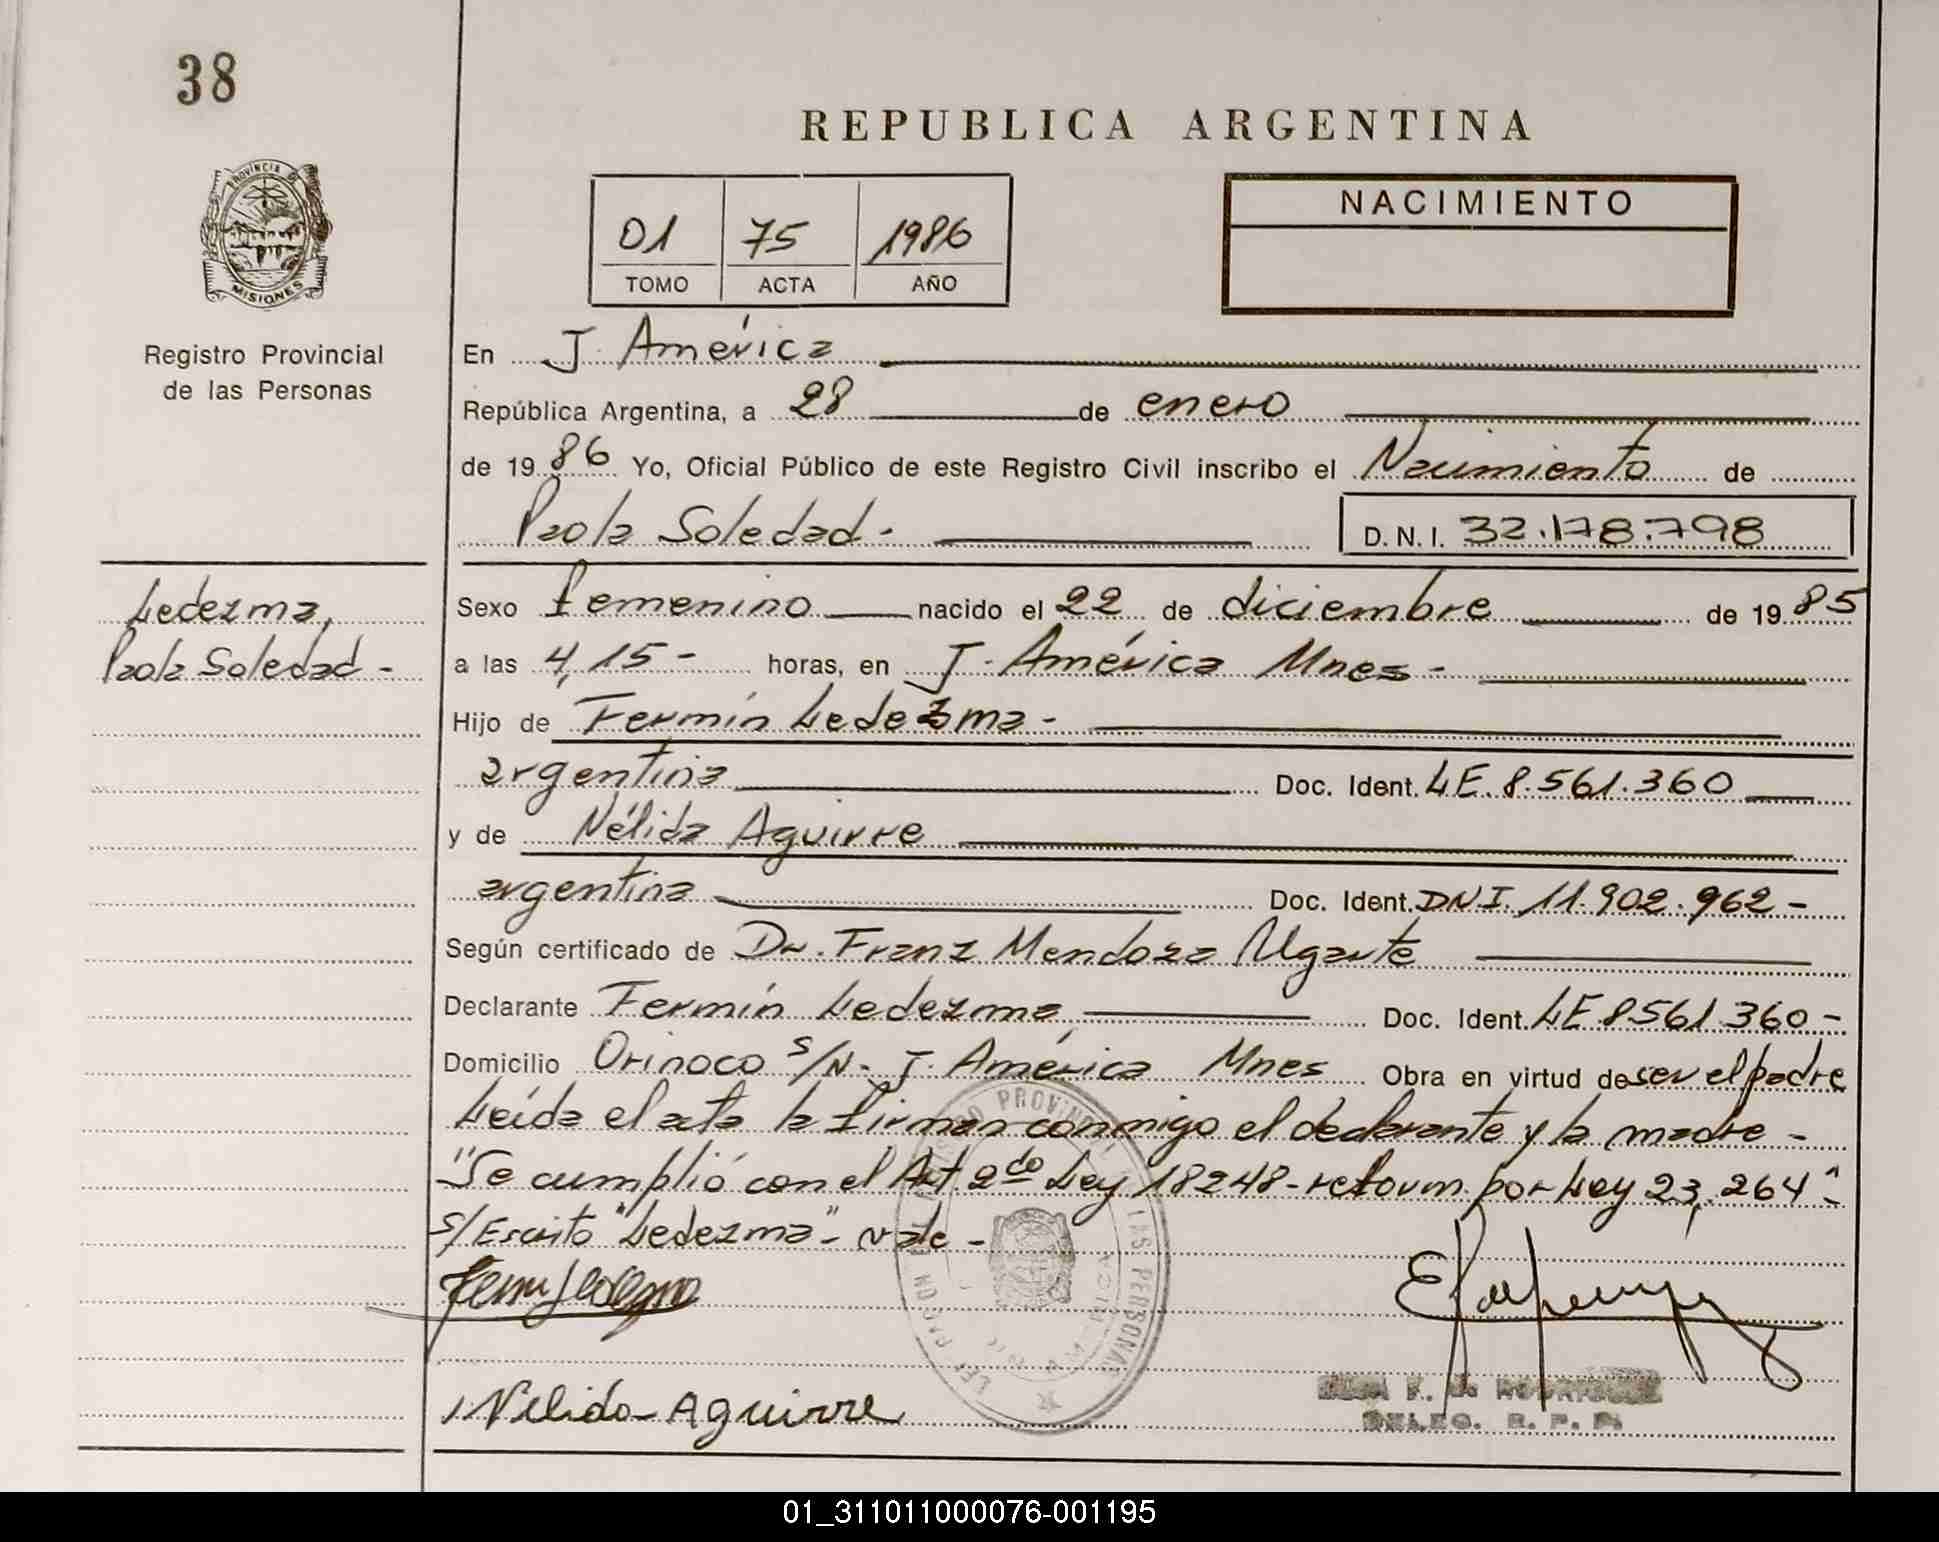 38
REPUBLICA ARGENTINA
PROVINCIA DE
MISIONES
01 75 1986
TOMO ACTA AÑO
NACIMIENTO
Registro Provincial
de las Personas
En J. América
República Argentina, a 28 de enero
de 1986 Yo, Oficial Público de este Registro Civil inscribo el Nacimiento de
Paola Soledad.-
D.N.I. 32.178.798
Ledezma,
Paola Soledad -
Sexo femenino nacido el 22 de diciembre de 1985
a las 4,15- horas, en J. América Mnes-
Hijo de Fermín Ledezma-
argentina Doc. Ident. LE.8.561.360
y de Nélida Aguirre
argentina Doc. Ident. DNI. 11.902.962-
Según certificado de Dr. Franz Mendoza Ugarte
Declarante Fermín Ledezma Doc. Ident. LE.8561.360-
Domicilio Orinoco s/N- J. América Mnes Obra en virtud de ser el padre
Leída el acta la firman conmigo el declarante y la madre -
"Se cumplió con el Art. 2do Ley 18248- reform. por Ley 23.264"-
s/Escrito "Ledezma"- vale -
Nelida Aguirre
REGISTRO PROVINCIAL DE LAS PERSONAS
RODRIGUEZ
DELEG. R. P. P.
01_311011000076-001195